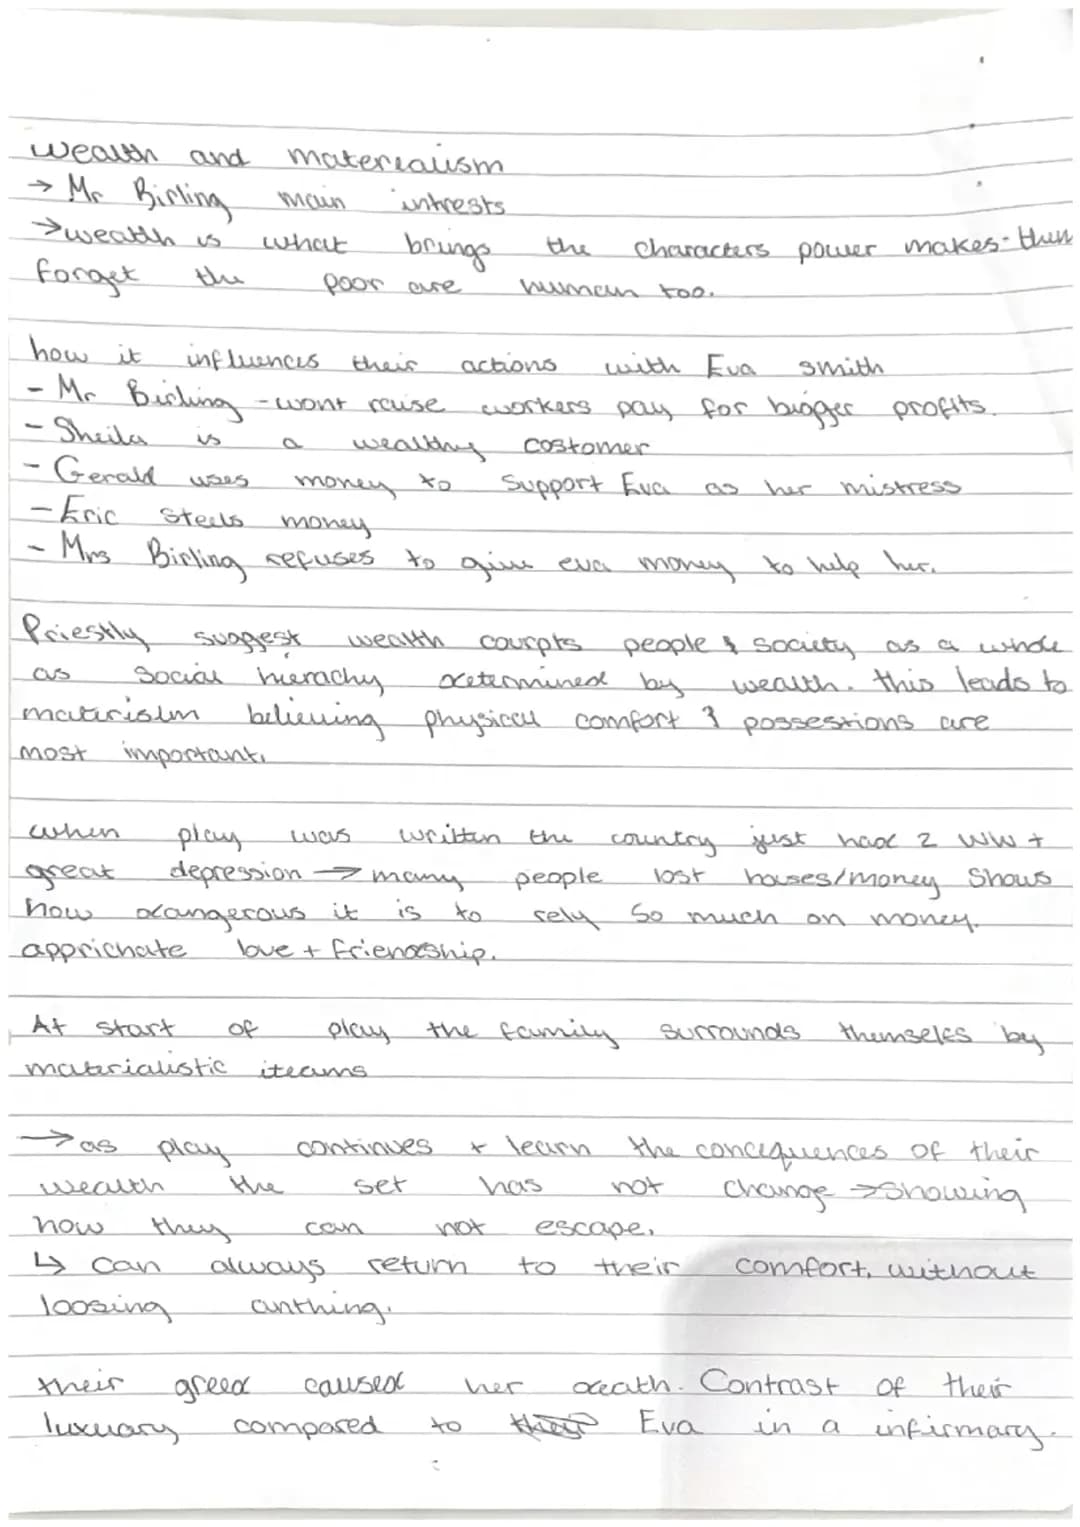 wealth and materealism
→ Mr Birling main intrests
→wealth is what brings the characters power makes them
forget the poor are human too.
how it influences their actions with Eva smith
- Mr Birling - wont raise workers pay for bigger profits.
- Sheila is a wealthy costomer
- Gerald uses money to support Eva as her mistress
- Eric steels money
- Mrs Birling refuses to give eva money to help her.
Priestly suggest wealth courpts people & society as a whole
as social hierachy determined by wealth. this leads to
materislm believing physical comfort & possestions are
most important.
when play was written the country just had 2 WW +
great depression → many people lost houses/money Shows
how dangerous it is to rely so much on money.
apprichate love + friendship.
At start of play the family surrounds themseles by
materialistic iteams
→ as play continues + learn the concequences of their
wealth the set has not change → showing
how they can not escape.
↳ can always return to their comfort, without
loosing anthing.
their greed caused her death. Contrast of their
luxuary compared to their Eva in a infirmary.